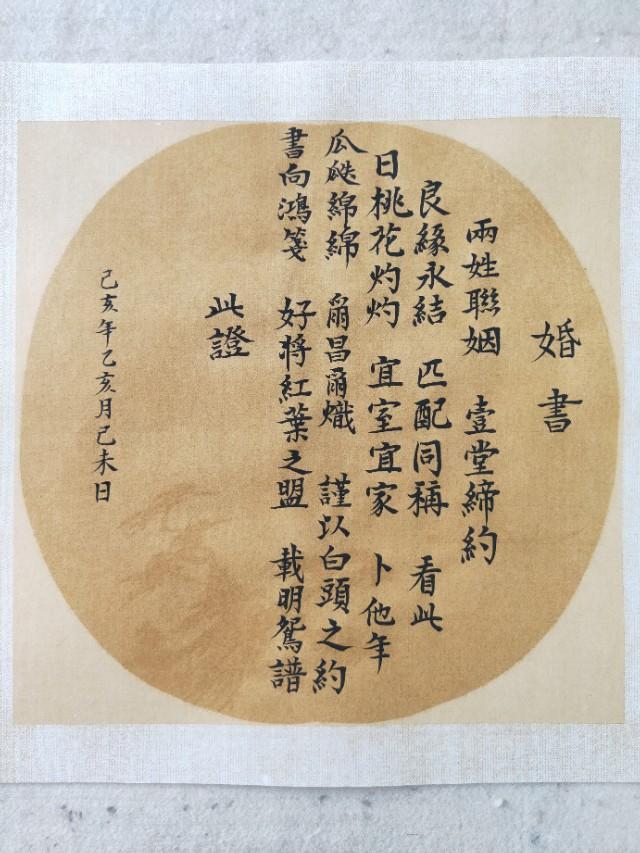 婚書
兩姓聯姻 壹堂締約
良緣永結 匹配同稱 看此
日桃花灼灼 宜室宜家 卜他年
瓜瓞綿綿 爾昌爾熾 謹以白頭之約
書向鴻箋 好將紅葉之盟 載明鴛譜
此證
己亥年乙亥月己未日